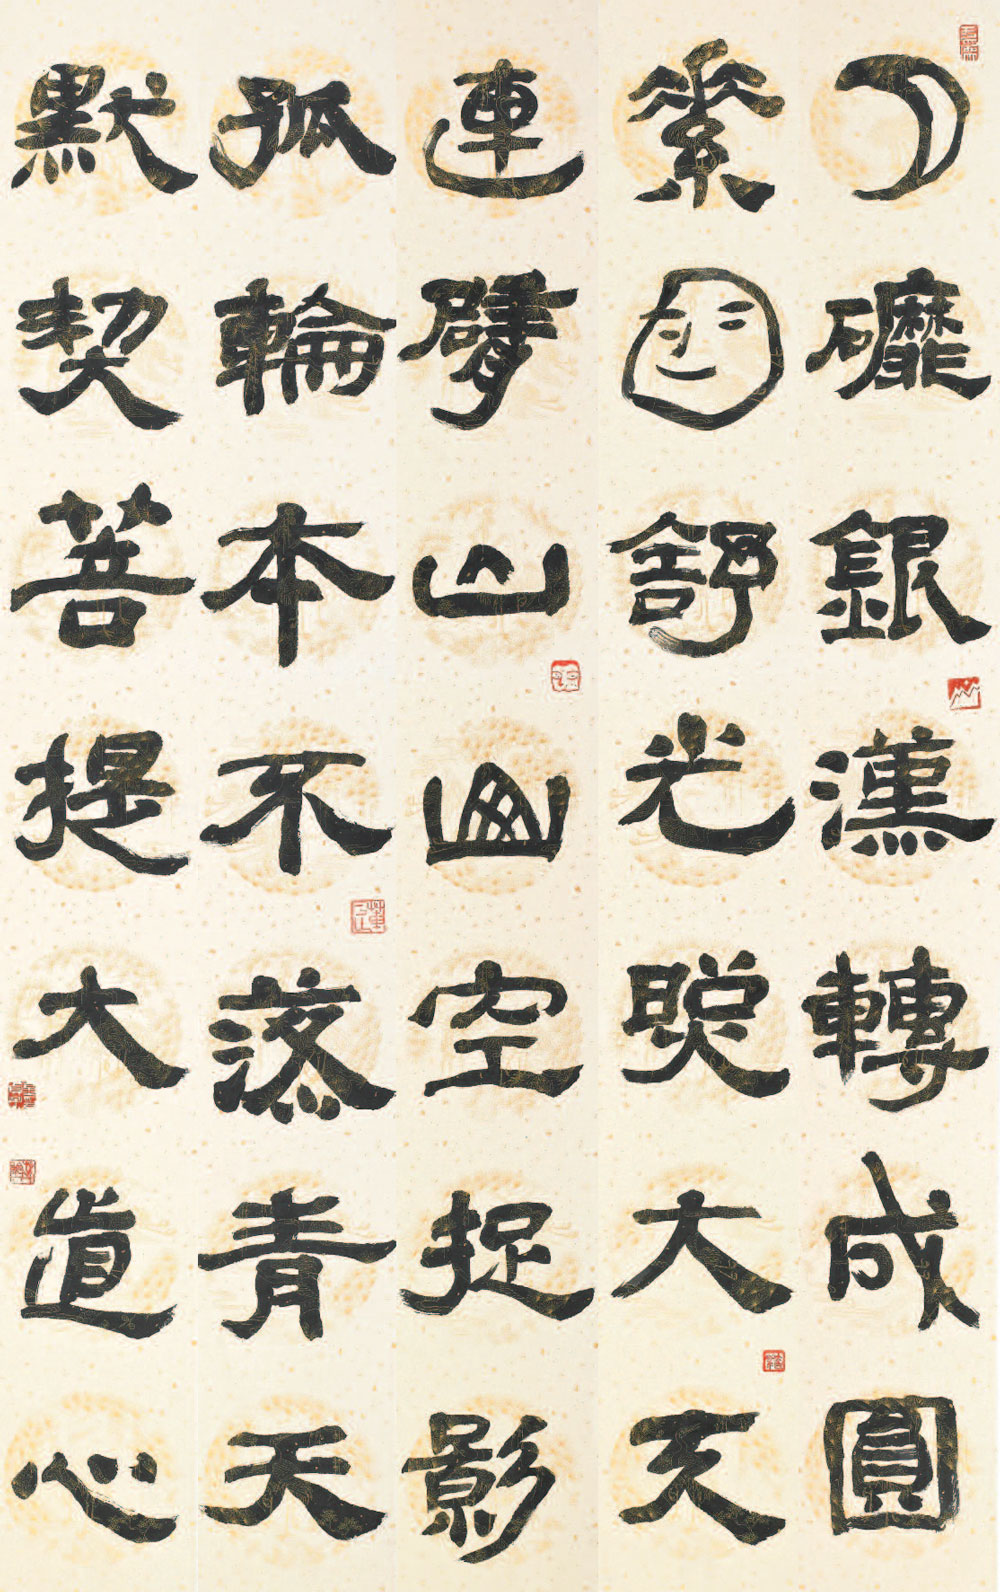 月䃺銀漢轉成圓
素面舒光大
連臂山山空捉影
孤輪本不落青天
默契菩提大道心